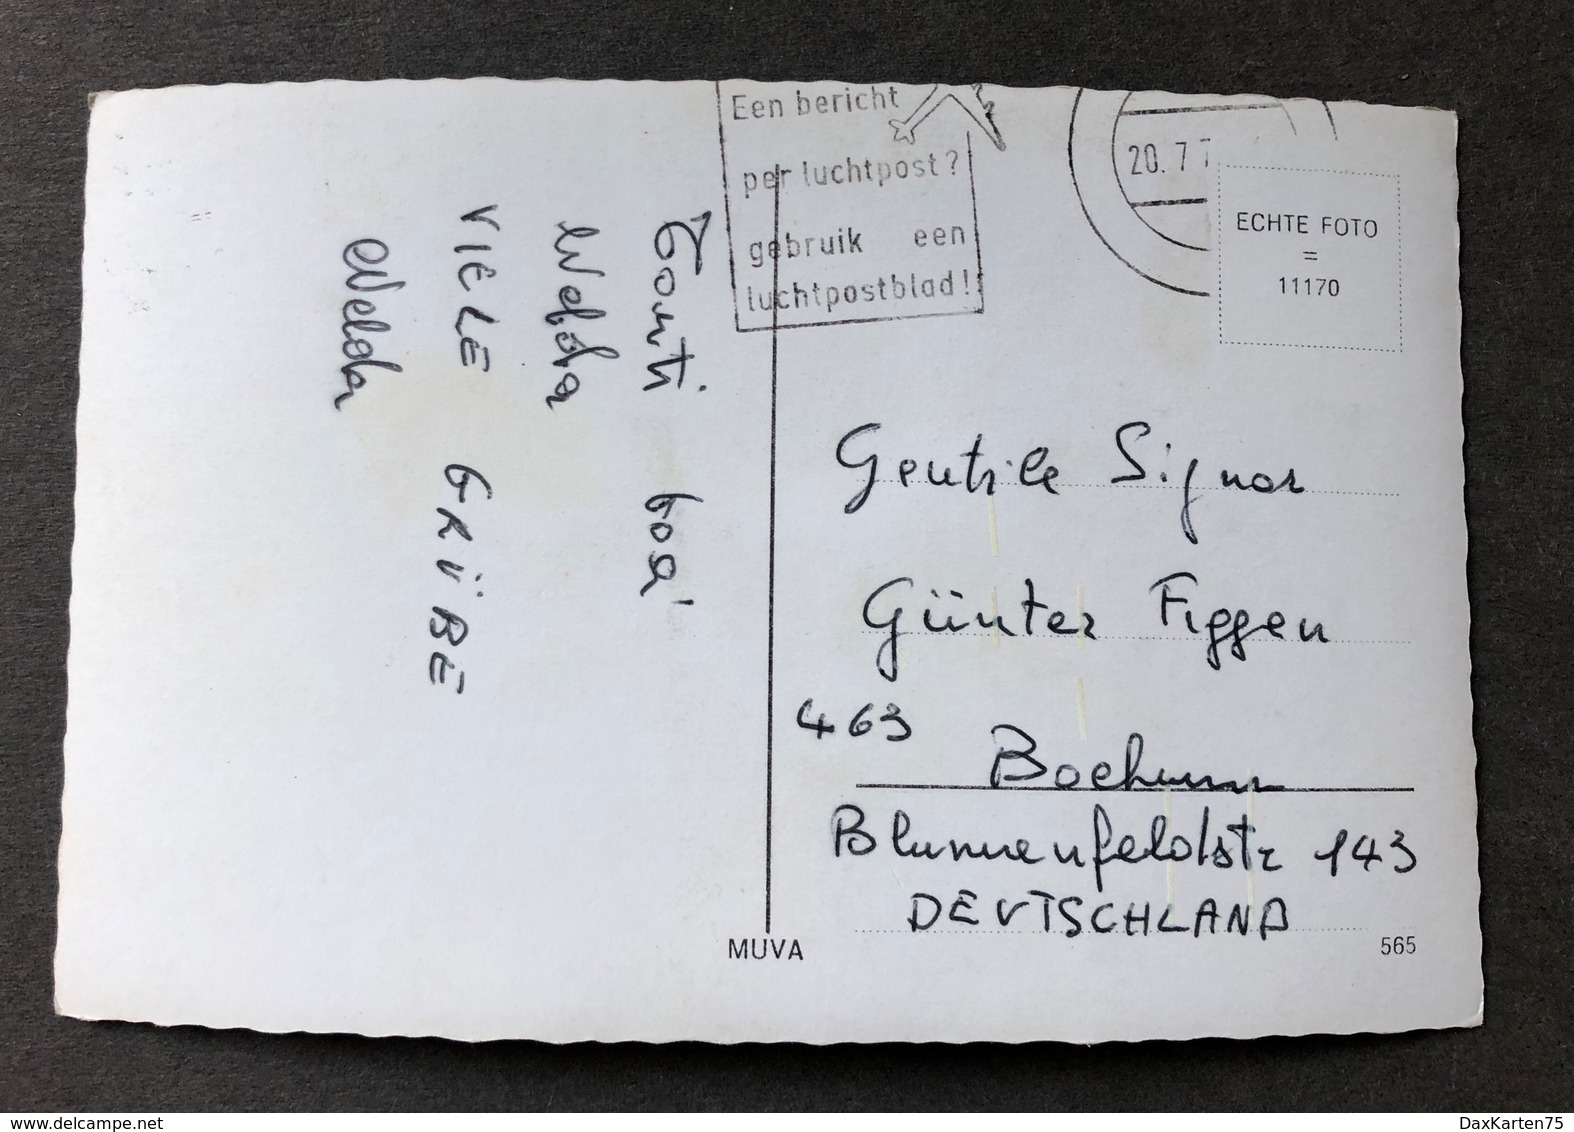 Een bericht
per luchtpost?
gebruik een
luchtpostblad!
20.7
ECHTE FOTO
=
11170
Tanti
Nelda
VIELE GRÜßE
Nelda
Gentile Signor
Günter Figgen
463 Bochum
Blumenfeldstr 143
DEUTSCHLAND
MUVA
565
www.delcampe.net
DaxKarten75